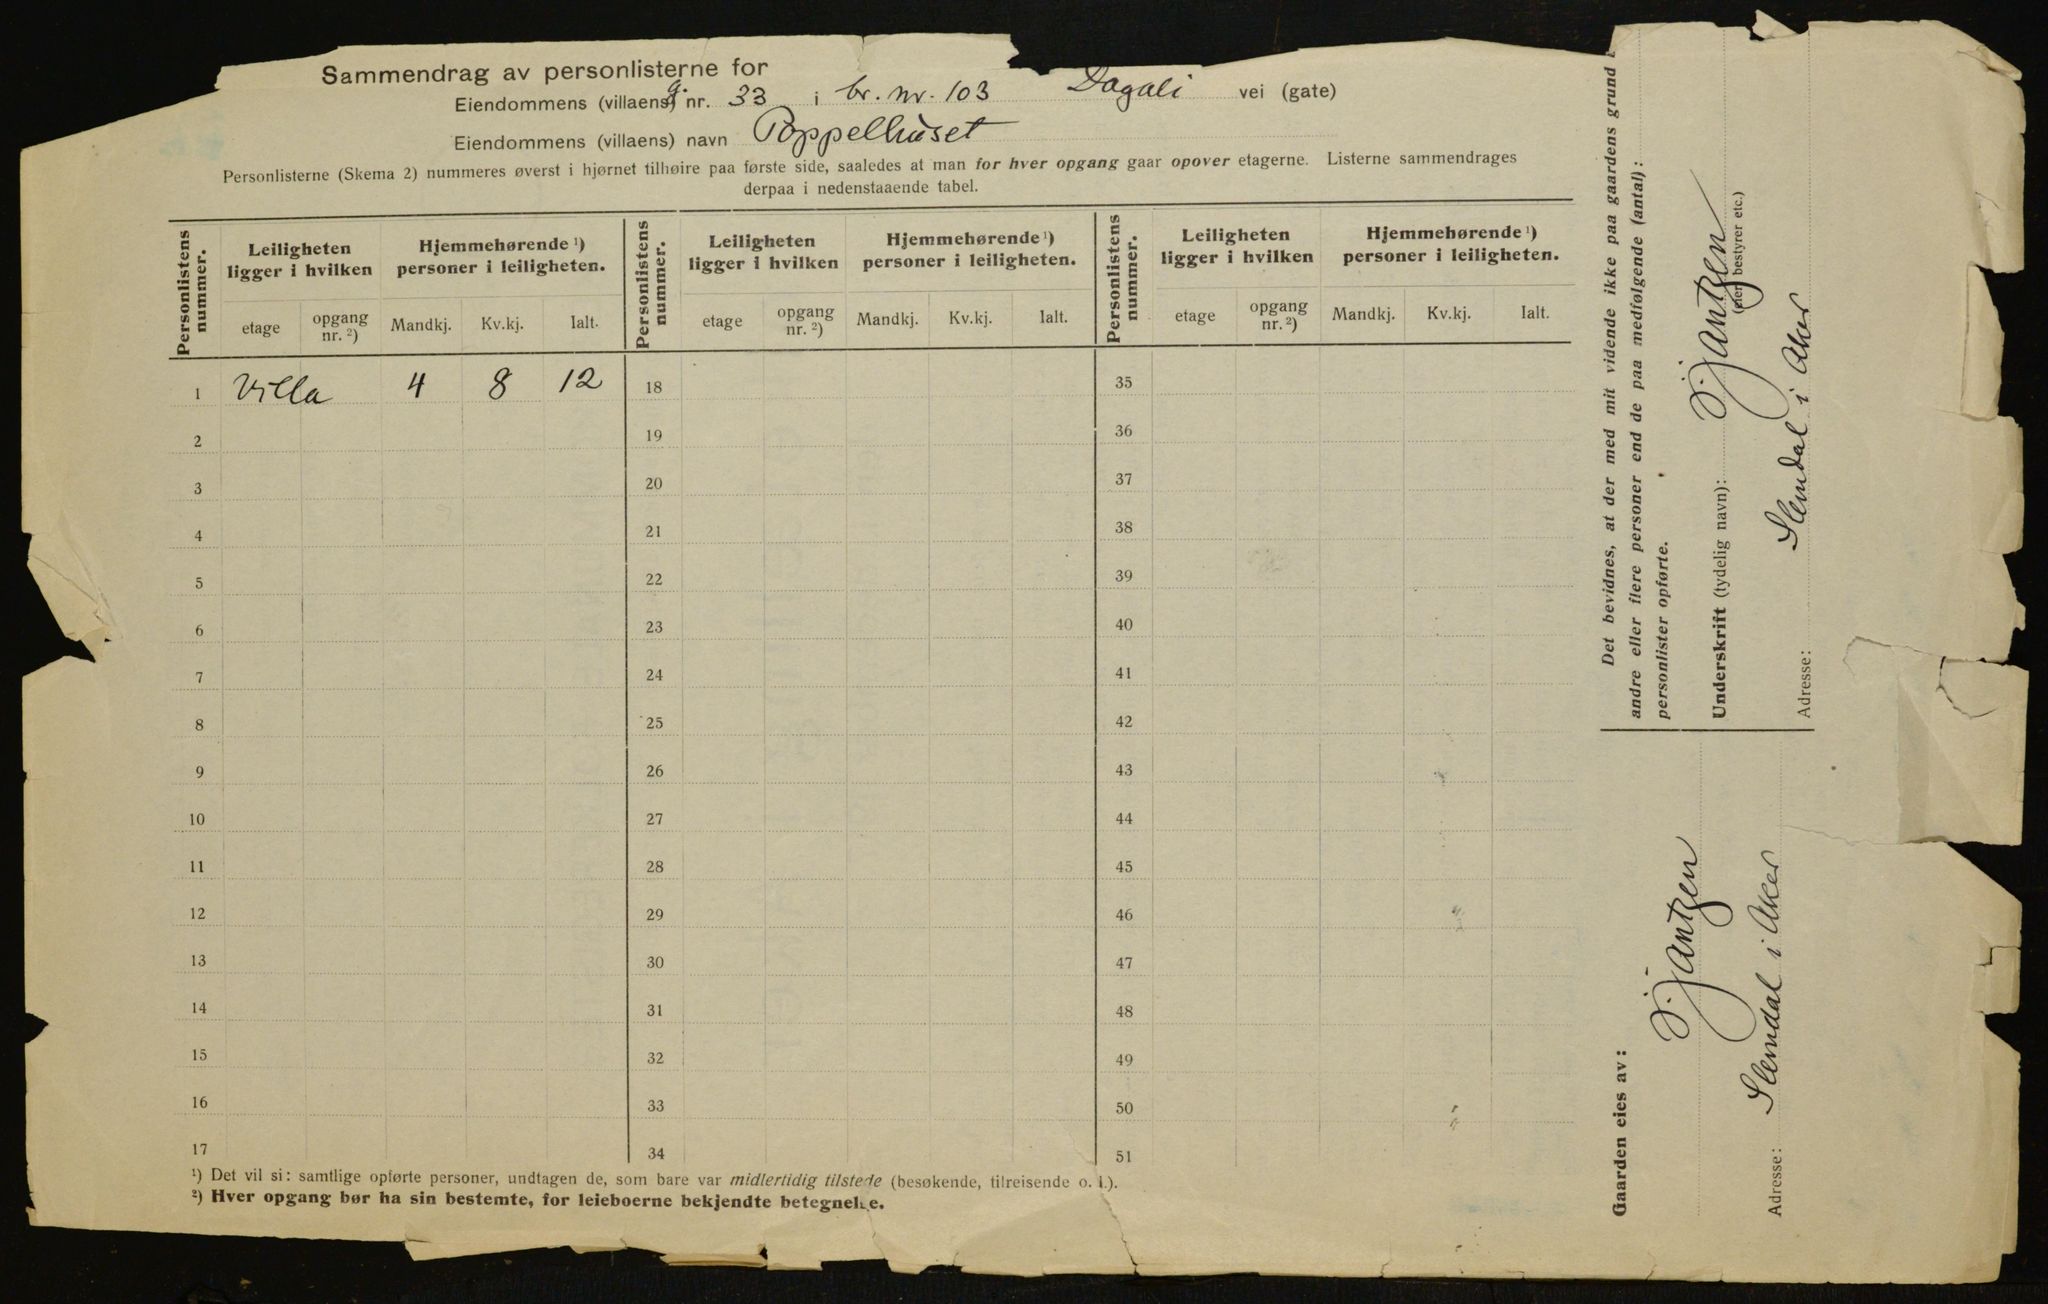 Sammendrag av personlisterne for
Eiendommens (villaens) g. nr. 33 i br. nr. 103 Dagali vei (gate)
Eiendommens (villaens) navn Poppelhuset
Personlisterne (Skema 2) nummeres øverst i hjørnet tilhøire paa første side, saaledes at man for hver opgang gaar opover etagerne. Listerne sammendrages
derpaa i nedenstaaende tabel.
Personlistens nummer. Leiligheten ligger i hvilken Hjemmehørende ¹) personer i leiligheten. Personlistens nummer. Leiligheten ligger i hvilken Hjemmehørende ¹) personer i leiligheten. Personlistens nummer. Leiligheten ligger i hvilken Hjemmehørende ¹) personer i leiligheten.
etage opgang nr. ²) Mandkj. Kv.kj. Ialt. etage opgang nr. ²) Mandkj. Kv.kj. Ialt. etage opgang nr. ²) Mandkj. Kv.kj. Ialt.
1 Villa 4 8 12 18 35
2 19 36
3 20 37
4 21 38
5 22 39
6 23 40
7 24 41
8 25 42
9 26 43
10 27 44
11 28 45
12 29 46
13 30 47
14 31 48
15 32 49
16 33 50
17 34 51
¹) Det vil si: samtlige opførte personer, undtagen de, som bare var midlertidig tilstede (besøkende, tilreisende o. l.).
²) Hver opgang bør ha sin bestemte, for leieboerne bekjendte betegnelse.
Det bevidnes, at der med mit vidende ikke paa gaardens grund
andre eller flere personer end de paa medfølgende (antal):
personlister opførte.
Underskrift (tydelig navn): S. Jantzen
(eier, bestyrer etc.)
Adresse: Slemdal i Aker
Gaarden eies av:
S. Jantzen
Adresse: Slemdal i Aker